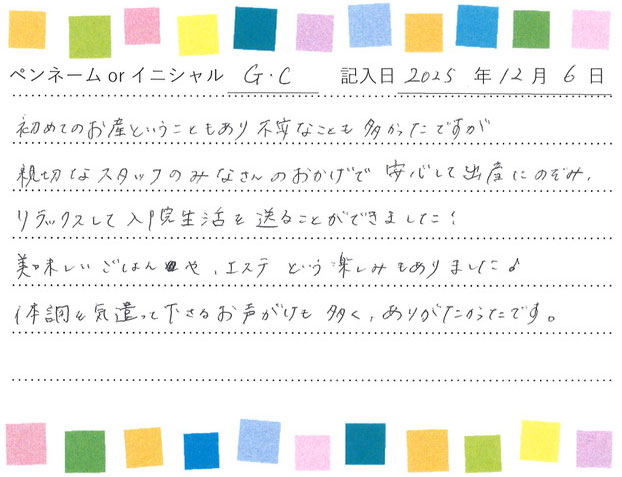 ペンネーム or イニシャル G・C 記入日 2025 年 12 月 6 日
初めてのお産ということもあり不安なことも多かったですが
親切なスタッフのみなさんのおかげで安心して出産にのぞみ、
リラックスして入院生活を送ることができました！
美味しいごはんや、エステという楽しみもありました♪
体調を気遣って下さるお声がけも多く、ありがたかったです。